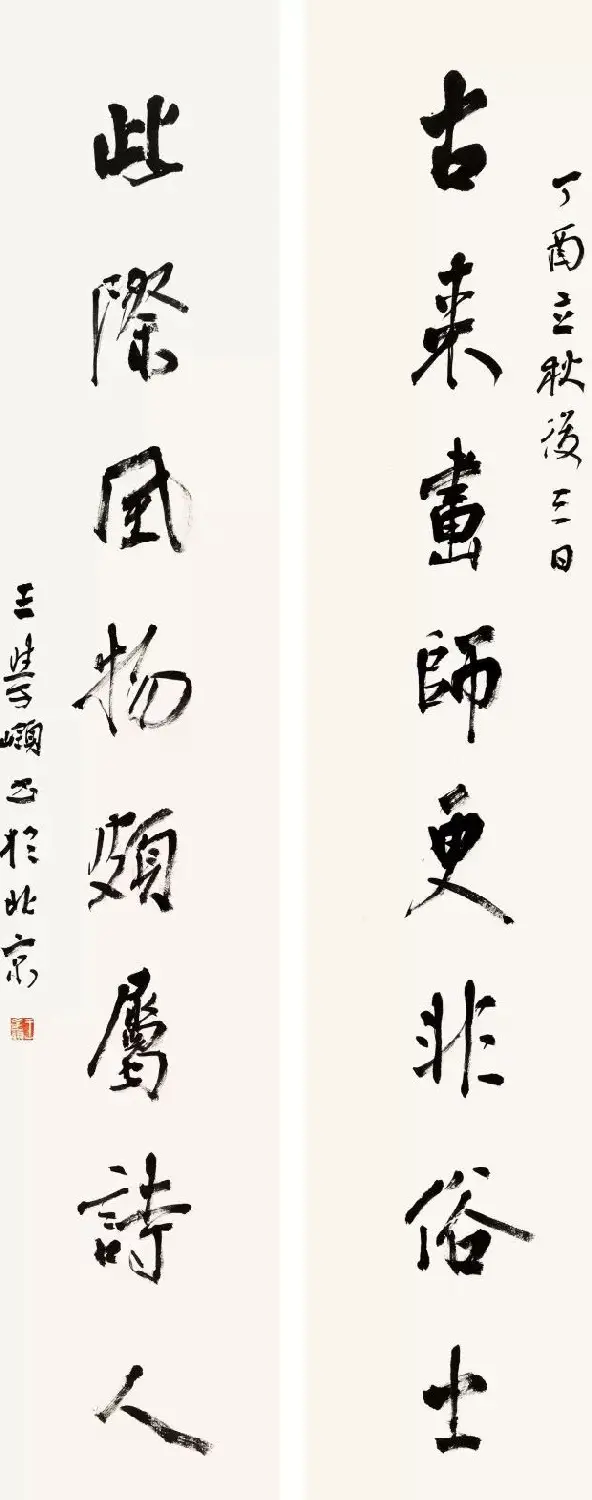 丁酉立秋後三日
古來畫師更非俗士
此際風物頗屬詩人
王學嶺書於北京